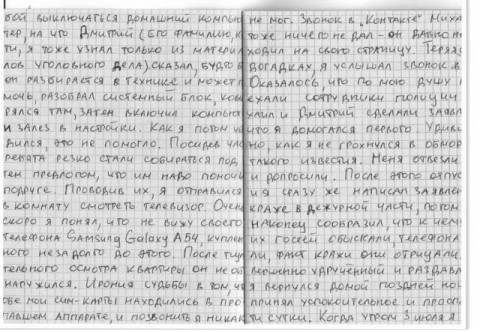 бой выключаться домашний компью
тер, на что Дмитрий (его фамилию, к
ти, я тоже узнал только из материа
лов уголовного дела) сказал, будто б
он разбирается в технике и может п
мочь, разобрал системный блок, ковы
рялся там, затем включил компьют
и залез в настройки. Как я потом уб
дился, это не помогло. Посидев час
ребята резко стали собираться под
тем предлогом, что им надо помочь
подруге. Проводив их, я отправился
в комнату смотреть телевизор. Очен
скоро я понял, что не вижу своего
телефона Samsung Galaxy A54, куплен
ного незадолго до этого. После тща
тельного осмотра квартиры он не об
наружился. Ирония судьбы в том, чт
обе мои сим-карты находились в про
павшем аппарате, и позвонить я никак
не мог. Звонок в „Контакте" Миха
тоже ничего не дал – он давно не
ходил на свою страницу. Теряяс
догадках, я услышал звонок в
Оказалось, что по мою душу п
ехали сотрудники полиции
хаил и Дмитрий сделали заявл
что я домогался первого. Удиви
но, как я не грохнулся в обмор
такого известия. Меня отвезли
и допросили. После этого отпус
и я сразу же написал заявлен
краже в дежурной части, потом
наконец сообразил, что к чему
их госгей обыскали, телефона
ли, факт кражи они отрицали.
вершенно удрученный и раздавл
я вернулся домой поздней ноч
принял успокоительное и просп
ти сутки. Когда утром 3 июля я